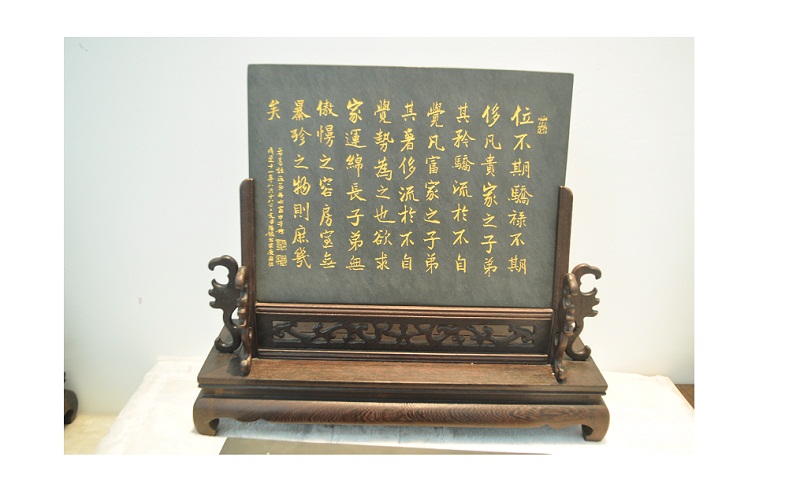 位不期驕祿不期
侈凡貴家之子弟
其矜驕流於不自
覺凡富家之子弟
其著侈流於不自
覺勢為之也欲求
家運綿長子弟無
傲慢之容房室無
暴殄之物則庶幾
矣